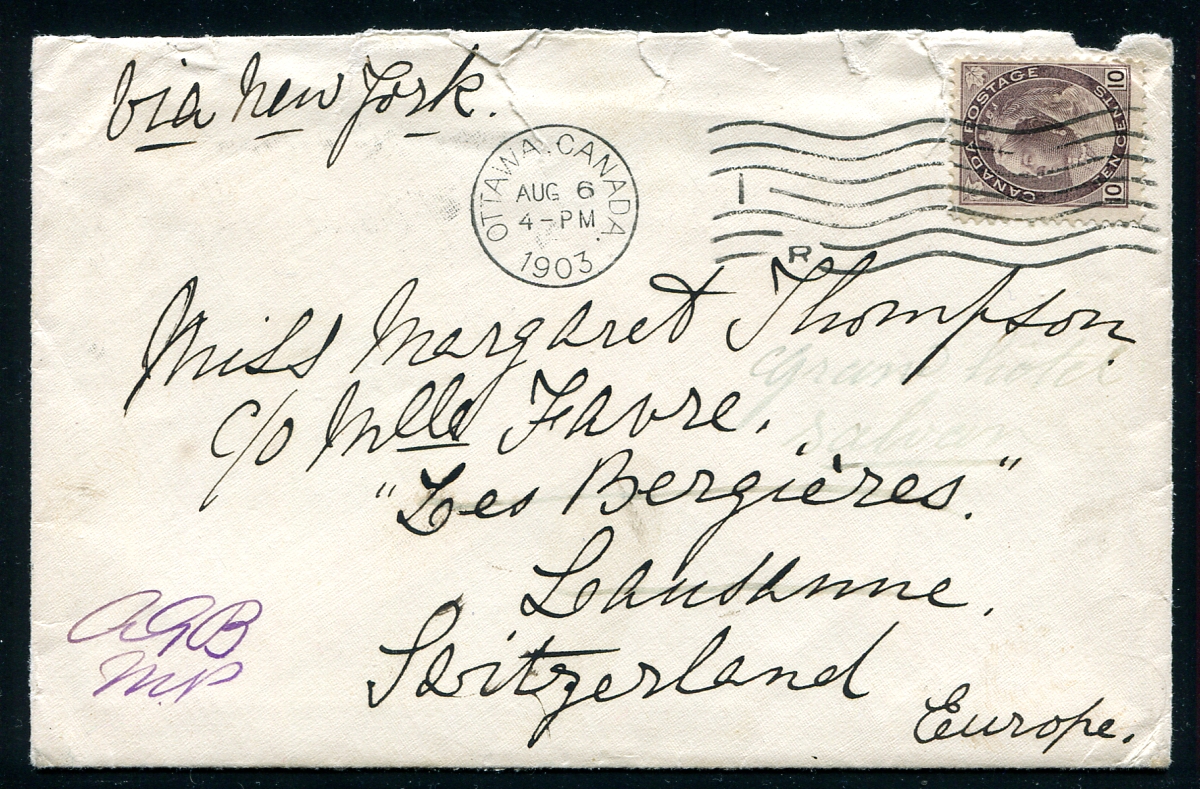 via New York.
OTTAWA, CANADA.
AUG 6
4-PM
1903
I
R
CANADA POSTAGE
TEN CENTS
10
10
Miss Margaret Thompson
c/o Mlle Favre.
"Les Bergières."
Lausanne.
Switzerland
Europe.
AGB
M.P